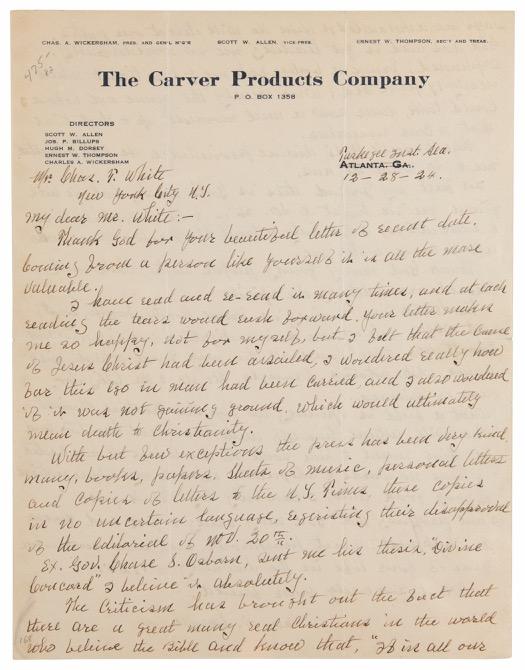 CHAS. A. WICKERSHAM, PRES. AND GEN'L M'G'R SCOTT W. ALLEN, VICE-PRES. ERNEST W. THOMPSON, SEC'Y AND TREAS.
475
The Carver Products Company
P. O. BOX 1358
DIRECTORS
SCOTT W. ALLEN
JOS. P. BILLUPS
HUGH M. DORSEY
ERNEST W. THOMPSON
CHARLES A. WICKERSHAM
Tuskegee Inst. Ala.
ATLANTA, GA.
12-28-24.
Mr. Chas. P. White
New York City N.Y.
My dear Mr. White:-
Thank God for your beautiful letter of recent date.
Coming from a person like yourself it is all the more
valuable.
I have read and re-read it many times, and at each
reading the tears would rush forward. your letter makes
me so happy, not for myself, but I felt that the cause
of Jesus Christ had been assailed, I wondered really how
far this ego in man had been carried and I also wondered
if it was not gaining ground. which would ultimately
mean death to Christianity.
With but few exceptions the press has been very kind.
many, books, papers, sheets of music, personal letters
and copies of letters to the N.Y. Times, these copies
in no uncertain language, registering their disapproval
of the editorial of Nov. 20th.
Ex. Gov. Chase S. Osborn, sent me his thesis, "Divine
Concord" I believe it absolutely.
The Criticism has brought out the fact that
there are a great many real Christians in the world
who believe the Bible and know that, "It is all our